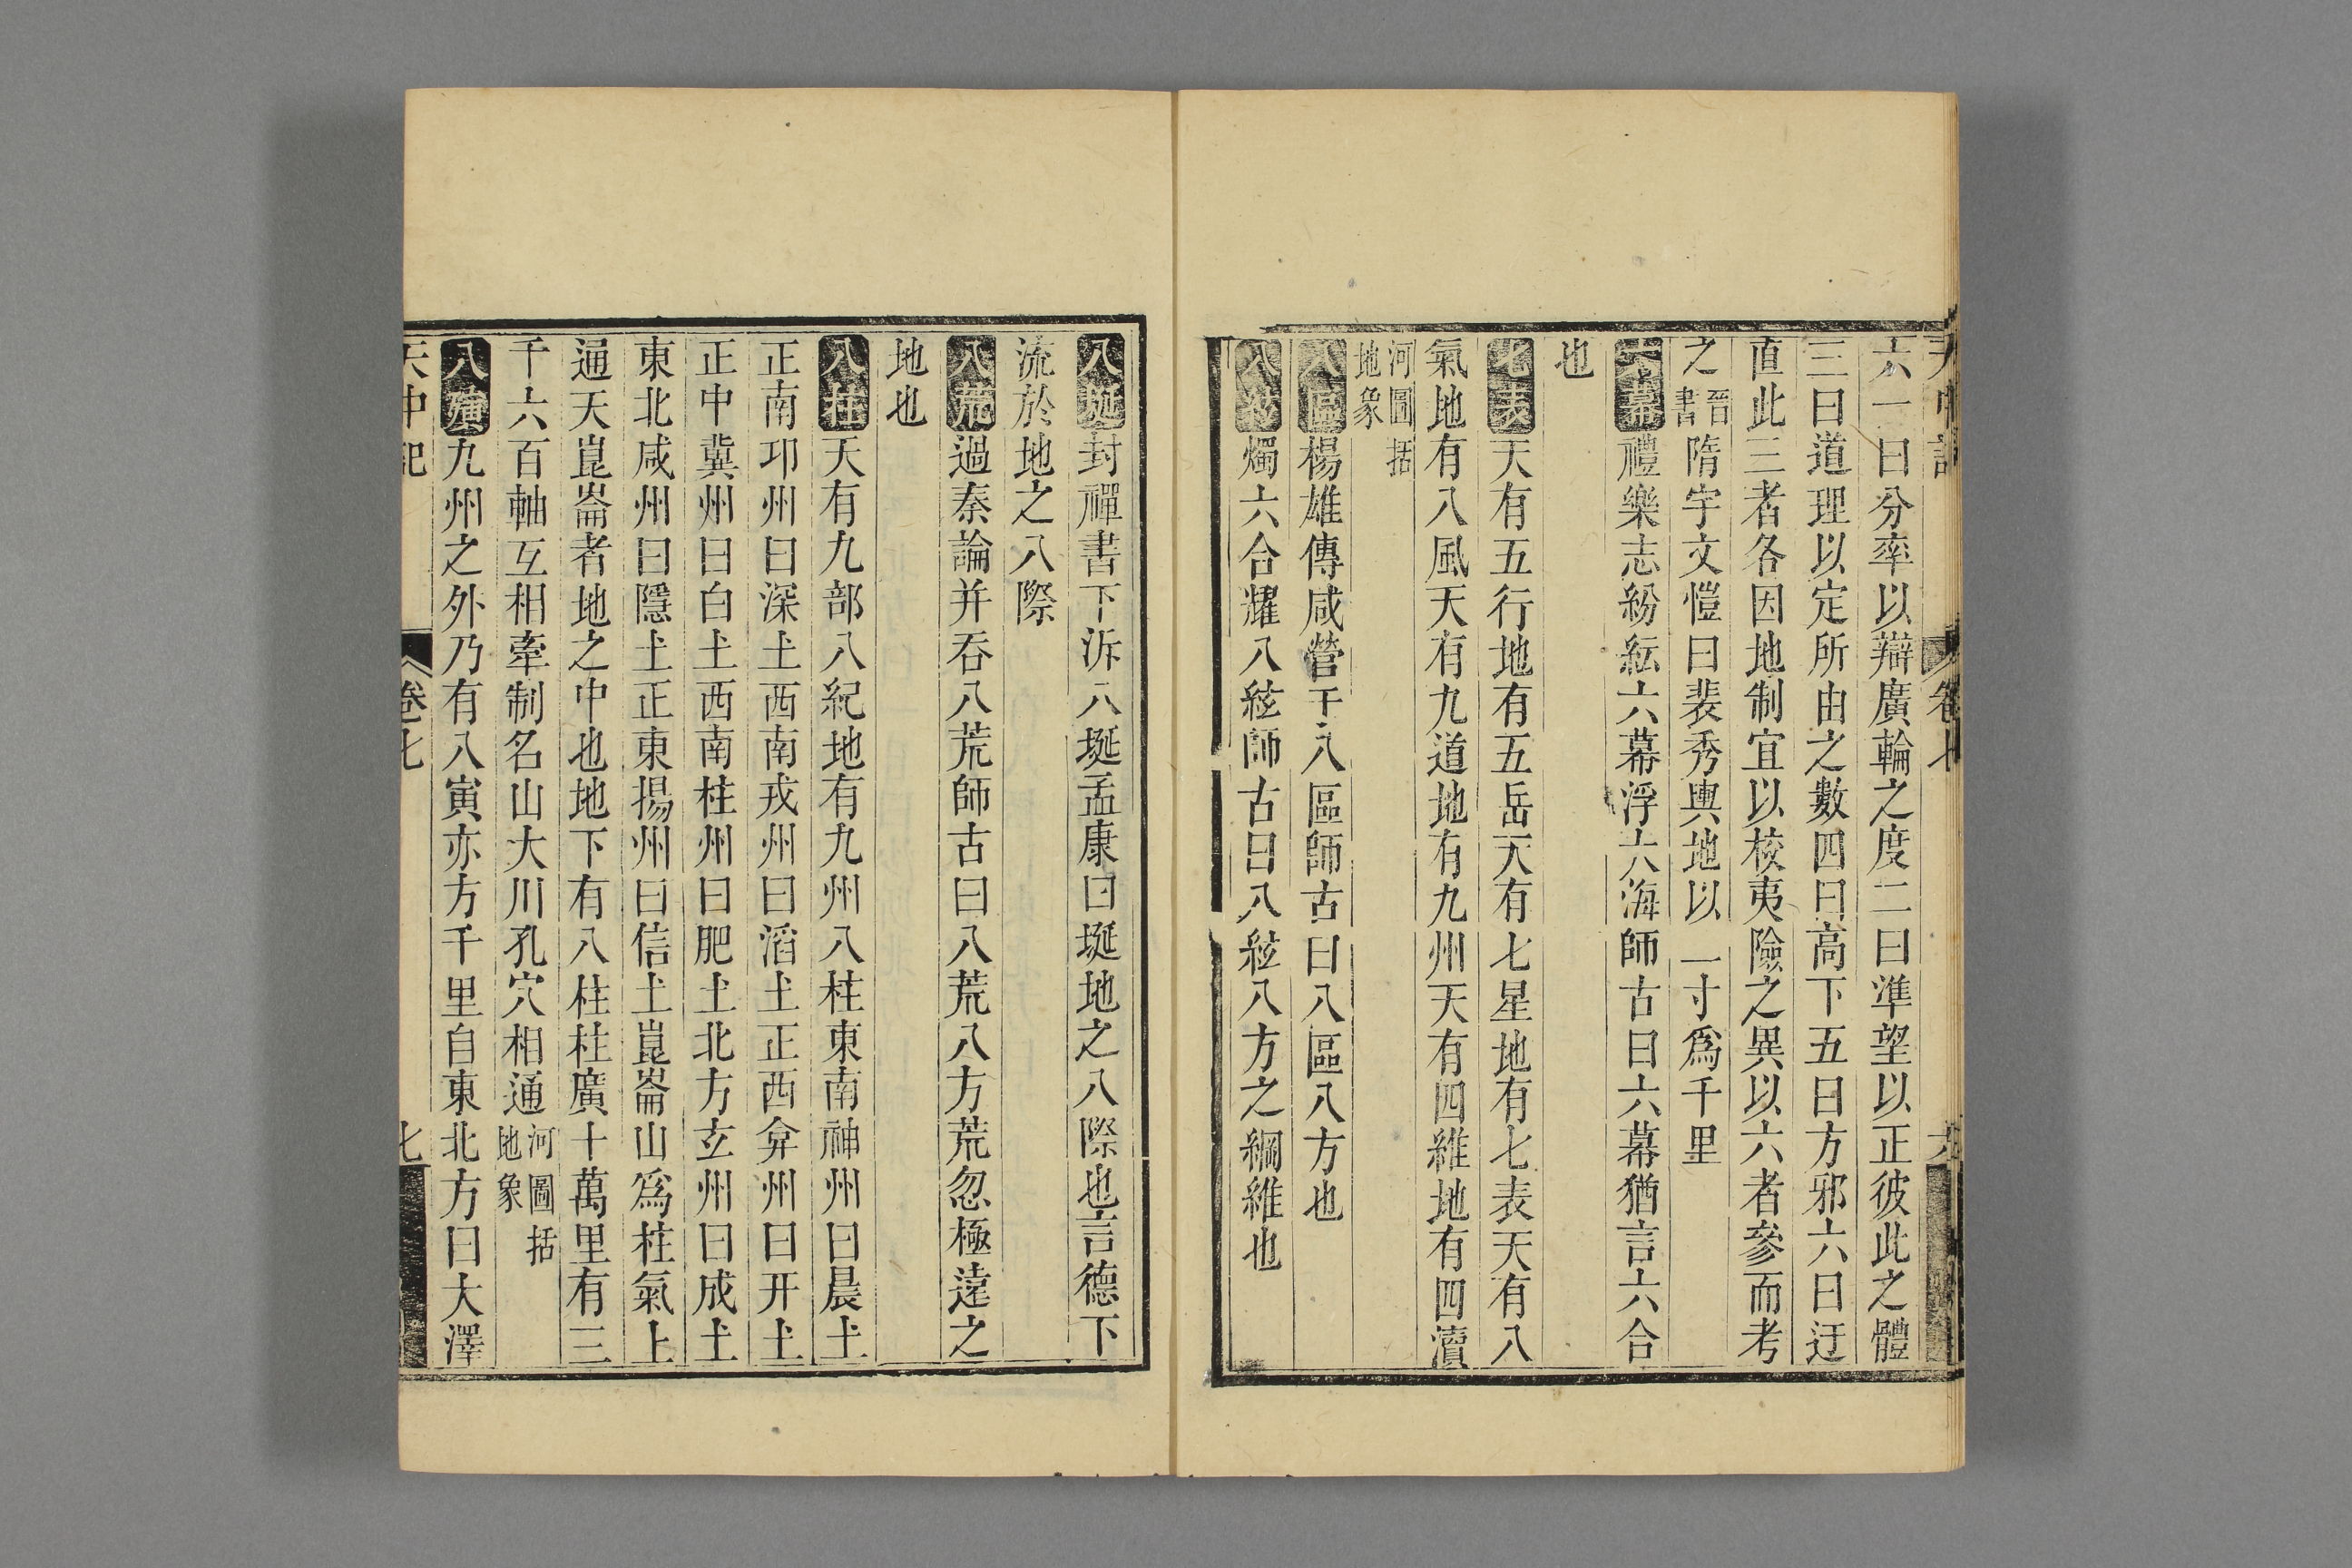 天中記 卷七 六
六一曰分率以辯廣輪之度二曰準望以正彼此之體
三曰道理以定所由之數四曰高下五曰方邪六曰迂
直此三者各因地制宜以校夷險之異以六者參而考
之晉書隋宇文愷曰裴秀輿地以一寸爲千里
六幕禮樂志紛紜六幕浮六海師古曰六幕猶言六合
也
七表天有五行地有五岳天有七星地有七表天有八
氣地有八風天有九道地有九州天有四維地有四瀆
河圖括地象
八區楊雄傳咸營于八區師古曰八區八方也
八紘燭六合耀八紘師古曰八紘八方之綱維也
八埏封禪書下泝八埏孟康曰埏地之八際也言德下
流於地之八際
八荒過秦論并吞八荒師古曰八荒八方荒忽極遠之
地也
八柱天有九部八紀地有九州八柱東南神州曰晨土
正南卭州曰深土西南戎州曰滔土正西弇州曰开土
正中冀州曰白土西南柱州曰肥土北方玄州曰成土
東北咸州曰隱土正東揚州曰信土崑崙山爲柱氣上
通天崑崙者地之中也地下有八柱柱廣十萬里有三
千六百軸互相牽制名山大川孔穴相通河圖括地象
八殥九州之外乃有八寅亦方千里自東北方曰大澤
天中記 卷七 七